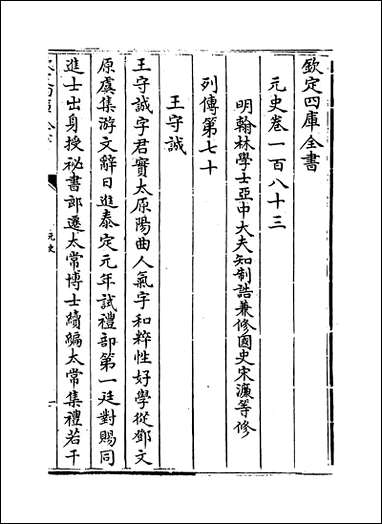 欽定四庫全書
元史卷一百八十三
明翰林學士亞中大夫知制誥兼修國史宋濂等修
列傳第七十
王守誠
王守誠字君實太原陽曲人氣宇和粹性好學從鄧文
原虞集游文辭日進泰定元年試禮部第一廷對賜同
進士出身授祕書郎遷太常博士續編太常集禮若干
元史